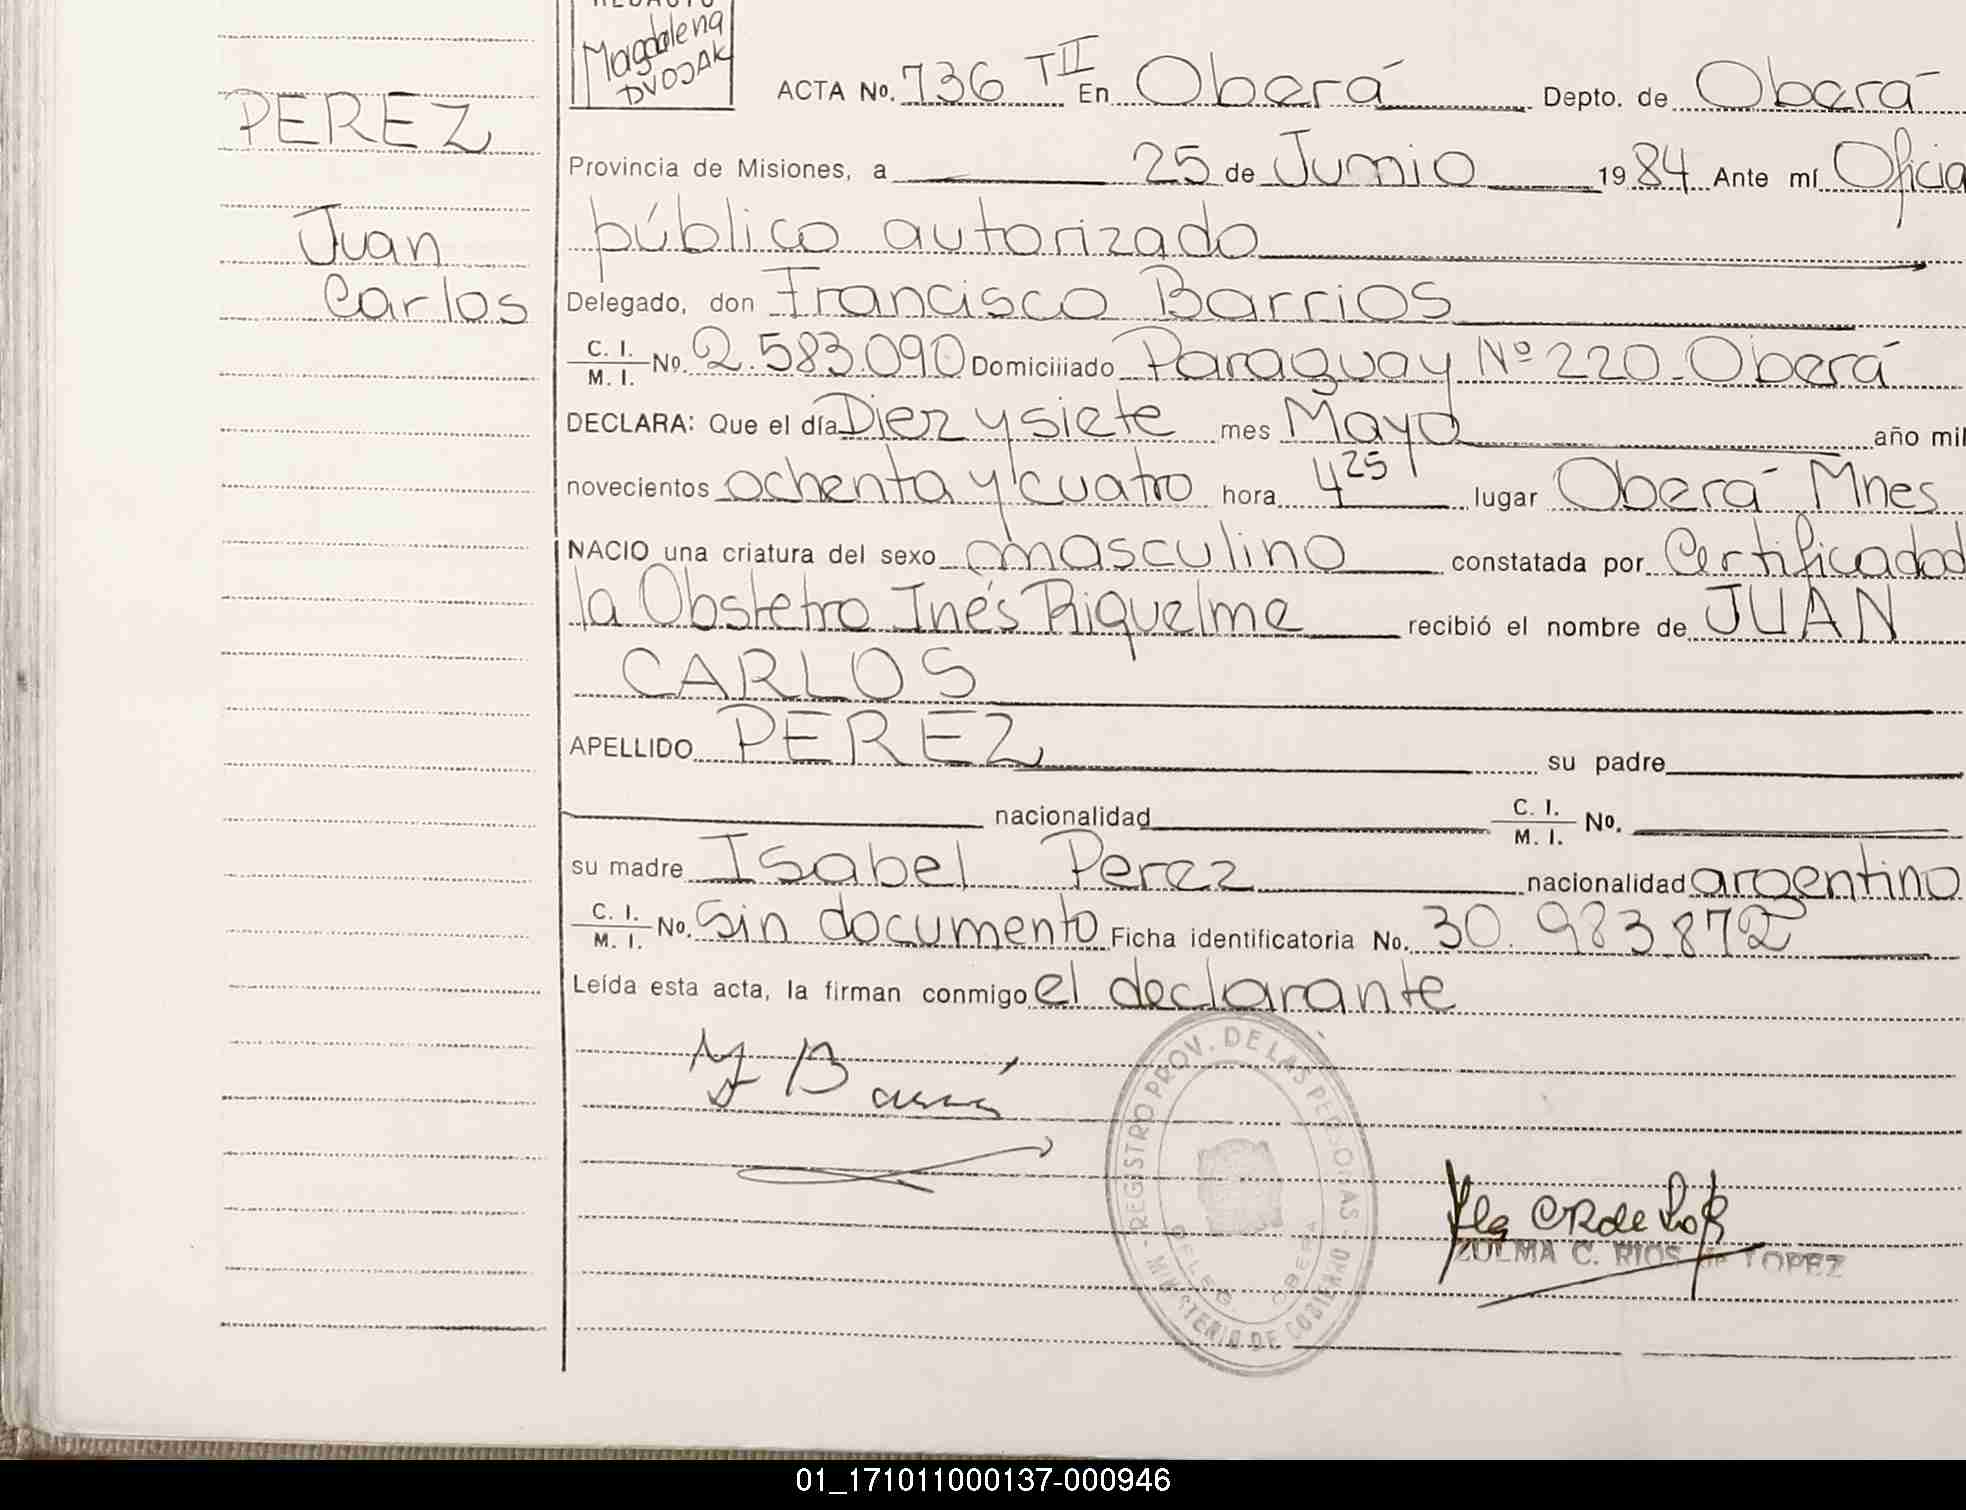 REDACTO
Magdalena
DVOJAK
PEREZ
Juan
Carlos
ACTA No. 736 TII En Oberá Depto. de Oberá
Provincia de Misiones, a 25 de Junio 1984 Ante mí Oficia
público autorizado
Delegado, don Francisco Barrios
C. I. / M. I. No. 2.583.090 Domiciliado Paraguay Nº 220 - Oberá
DECLARA: Que el día Diez y siete mes Mayo año mil
novecientos ochenta y cuatro hora 4 25 lugar Oberá Mnes
NACIO una criatura del sexo masculino constatada por Certificadod
la Obstetro Inés Riquelme recibió el nombre de JUAN
CARLOS
APELLIDO PEREZ su padre
nacionalidad C. I. / M. I. No.
su madre Isabel Perez nacionalidad argentino
C. I. / M. I. No. Sin documento Ficha identificatoria No. 30.983.872
Leída esta acta, la firman conmigo el declarante
REGISTRO PROV. DE LAS PERSONAS
DELEG. OBERA
MINISTERIO DE GOBIERNO
ZULMA C. RIOS de LOPEZ
01_171011000137-000946